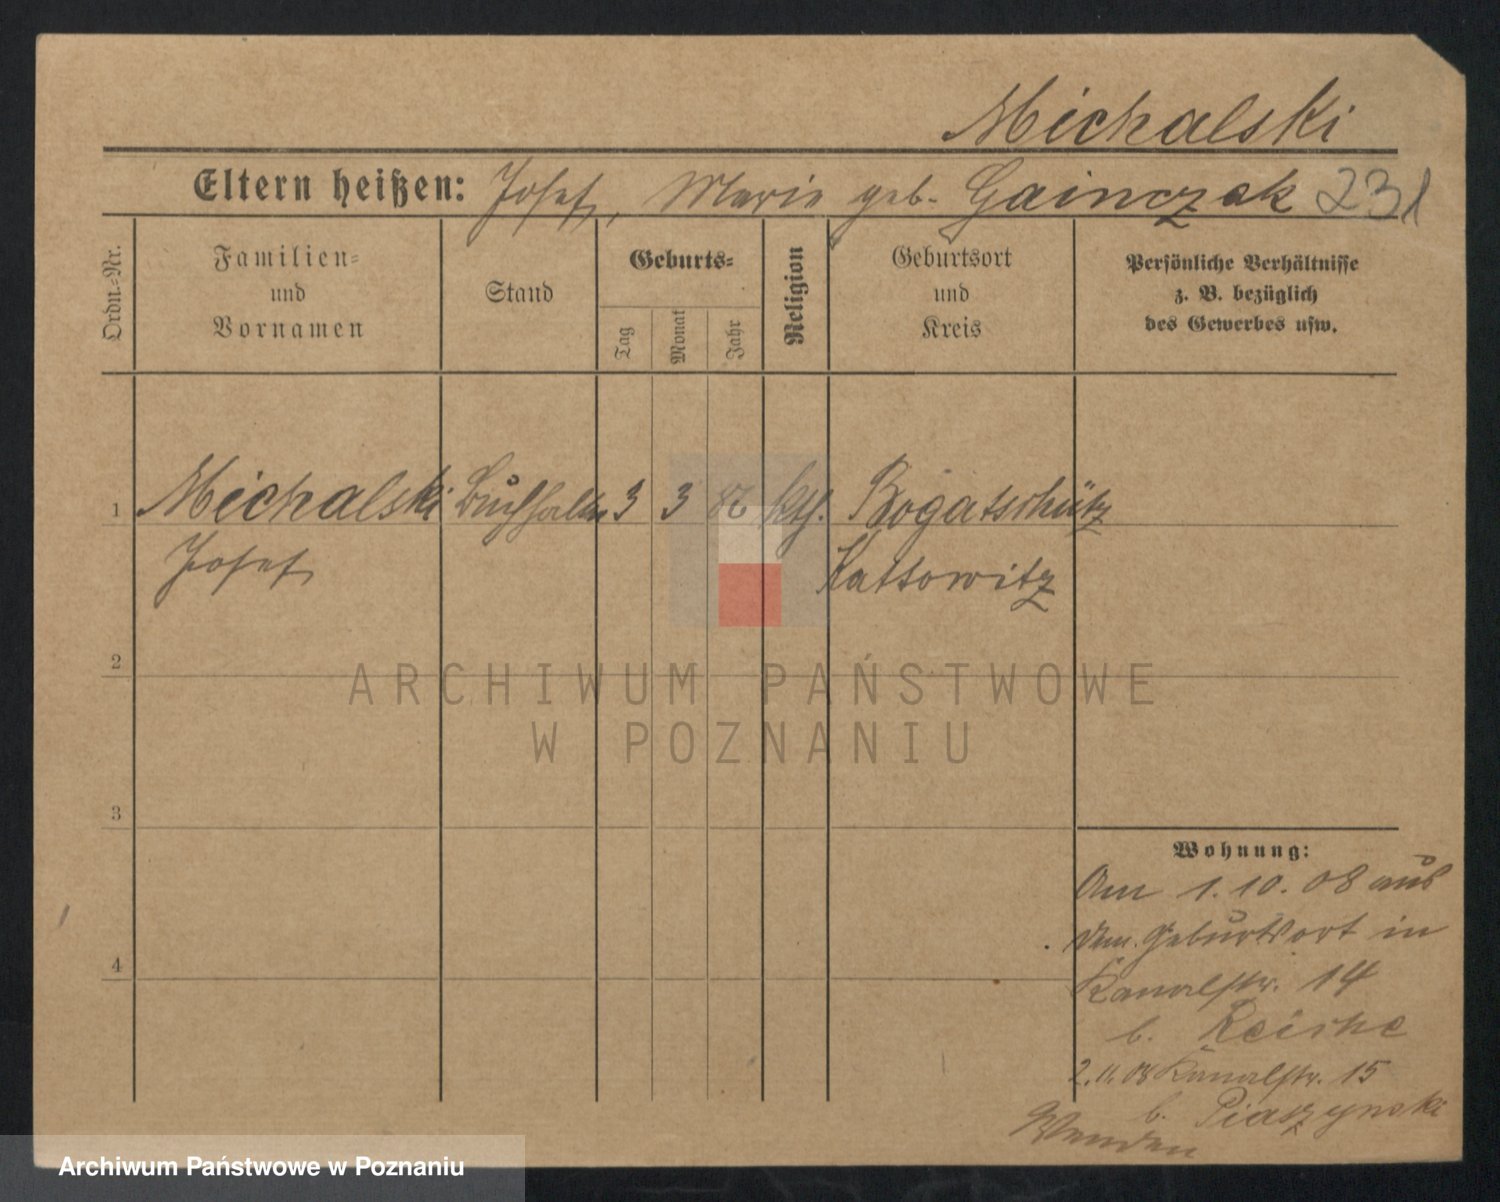 Michalski
Eltern heißen: Josef, Marie geb. Gainczak 231
Ordn.-Nr.
Familien-
und
Vornamen
Stand
Geburts-
Tag
Monat
Jahr
Religion
Geburtsort
und
Kreis
Persönliche Verhältnisse
z. B. bezüglich
des Gewerbes usw.
1 Michalski Buchhalter 3 3 kth. Bogatschütz
Josef Kattowitz
2
3
4
Wohnung:
Am 1.10.08 aus
dem Geburtsort in
Kanalstr. 14
b. Reiske
2.11.08 Kanalstr. 15
b. Piaszynski
Wenden
ARCHIWUM PAŃSTWOWE
W POZNANIU
Archiwum Państwowe w Poznaniu